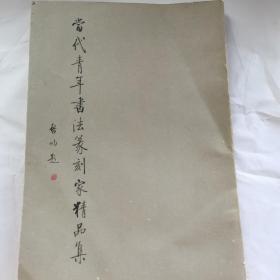 當代青年書法篆刻家精品集
啓功題